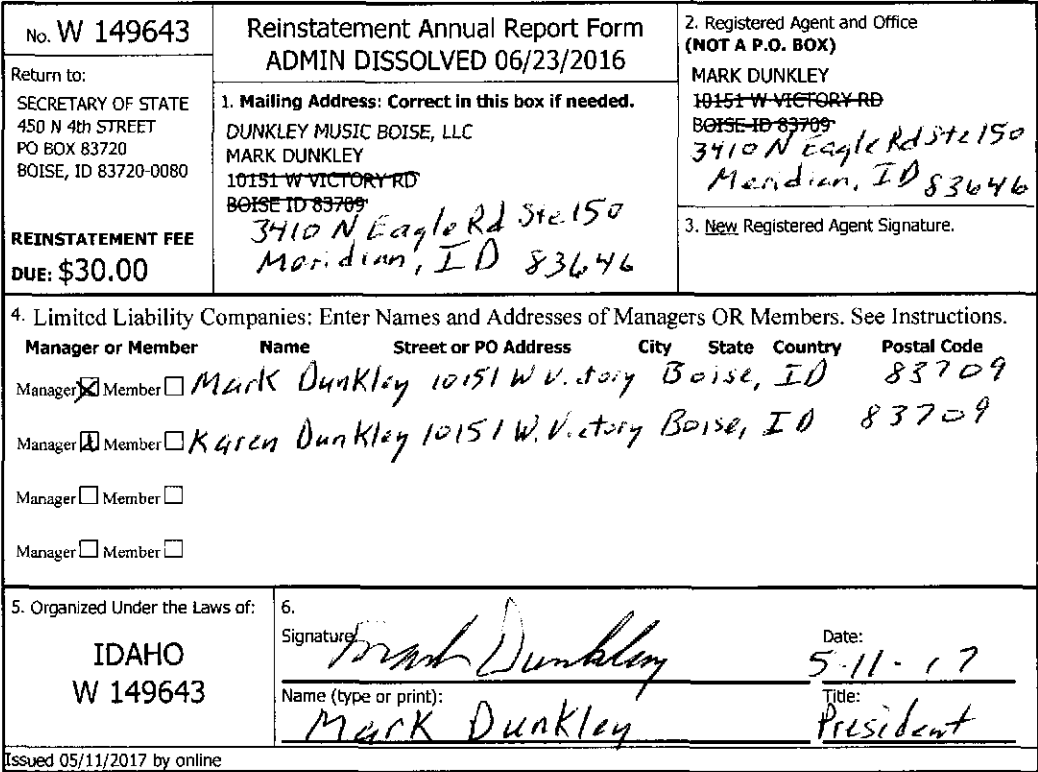 No. W 149643
Return to:
SECRETARY OF STATE
450 N 4th STREET
PO BOX 83720
BOISE, ID 83720-0080
REINSTATEMENT FEE
DUE: $30.00
Reinstatement Annual Report Form
ADMIN DISSOLVED 06/23/2016
1. Mailing Address: Correct in this box if needed.
DUNKLEY MUSIC BOISE, LLC
MARK DUNKLEY
10151 W VICTORY RD
BOISE ID 83709
3410 N Eagle Rd Ste 150
Meridian, ID 83646
2. Registered Agent and Office
(NOT A P.O. BOX)
MARK DUNKLEY
10151 W VICTORY RD
BOISE ID 83709
3410 N Eagle Rd Ste 150
Meridian, ID 83646
3. New Registered Agent Signature.
4. Limited Liability Companies: Enter Names and Addresses of Managers OR Members. See Instructions.
Manager or Member Name Street or PO Address City State Country Postal Code
Manager Member Mark Dunkley 10151 W Victory Boise, ID 83709
Manager Member Karen Dunkley 10151 W. Victory Boise, ID 83709
Manager Member
Manager Member
5. Organized Under the Laws of:
IDAHO
W 149643
6.
Signature: Mark Dunkley
Date:
5-11-17
Name (type or print):
Mark Dunkley
Title:
President
Issued 05/11/2017 by online